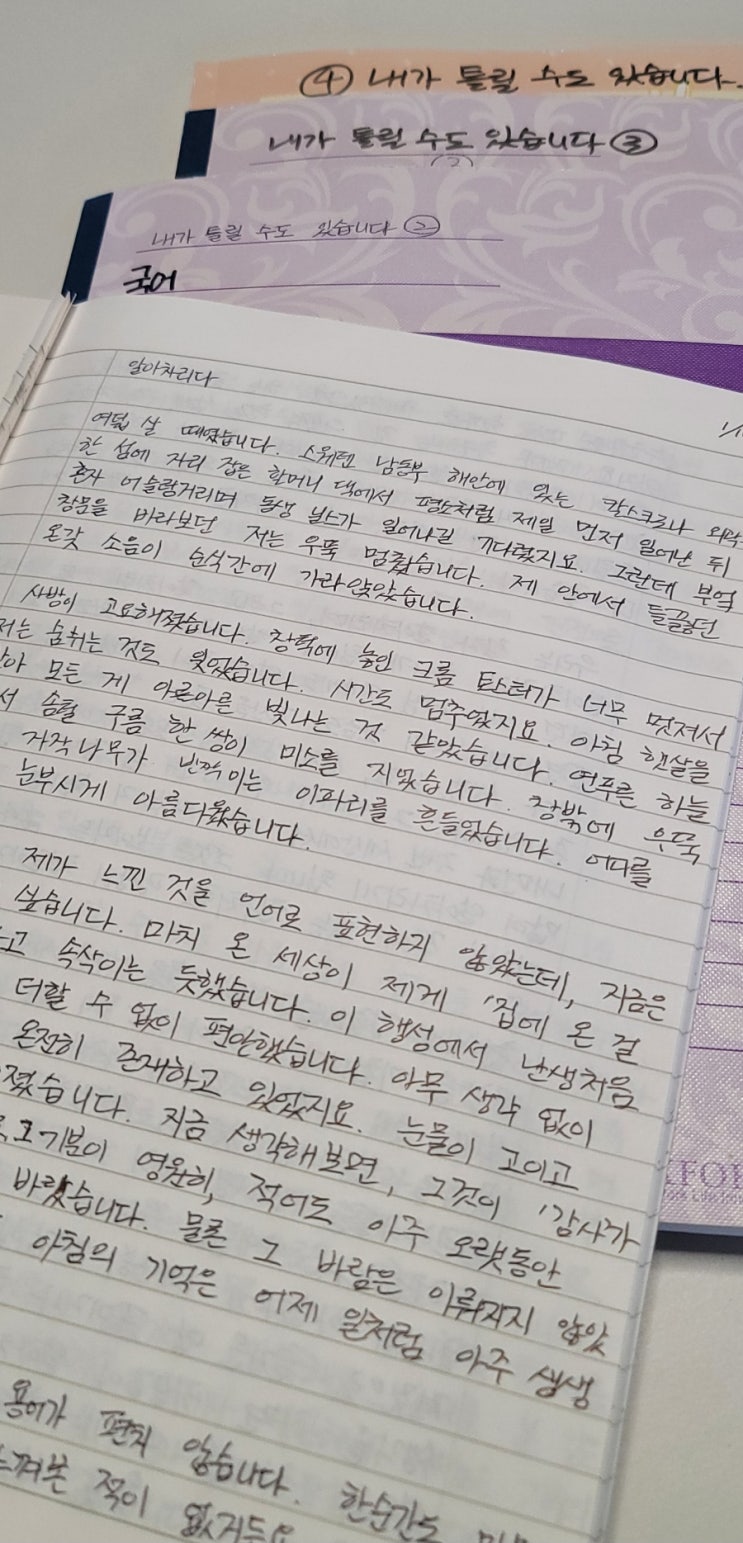 ④ 내가 틀릴 수도 있습니다.
내가 틀릴 수도 있습니다 ③
(2)
내가 틀릴 수도 있습니다 ②
국어
알아차리다
여덟 살 때였습니다. 스웨덴 남동부 해안에 있는 칼스크로나 외곽
한 섬에 자리 잡은 할머니 댁에서 평소처럼 제일 먼저 일어난 뒤
혼자 어슬렁거리며 동생 닐스가 일어나길 기다렸지요. 그런데 부엌
창문을 바라보던 저는 우뚝 멈췄습니다. 제 안에서 들끓던
온갖 소음이 순식간에 가라앉았습니다.
사방이 고요해졌습니다. 창턱에 놓인 크롬 토스터가 너무 멋져서
저는 숨쉬는 것도 잊었습니다. 시간도 멈추었지요. 아침 햇살을
모든 게 아른아른 빛나는 것 같았습니다. 연푸른 하늘
서 솜털 구름 한 쌍이 미소를 지었습니다. 창밖에 우뚝
자작나무가 반짝이는 이파리를 흔들었습니다. 어디를
눈부시게 아름다웠습니다.
제가 느낀 것을 언어로 표현하지 않았는데, 지금은
싶습니다. 마치 온 세상이 제게 '집에 온 걸
고 속삭이는 듯했습니다. 이 행성에서 난생처음
더할 수 없이 편안했습니다. 아무 생각 없이
온전히 존재하고 있었지요. 눈물이 고이고
졌습니다. 지금 생각해보면, 그것이 '감사가
그 기분이 영원히, 적어도 아주 오랫동안
바랐습니다. 물론 그 바람은 이뤄지지 않았
아침의 기억은 어제 일처럼 아주 생생
용어가 편치 않습니다. 한순간도
느껴본 적이 없거든요